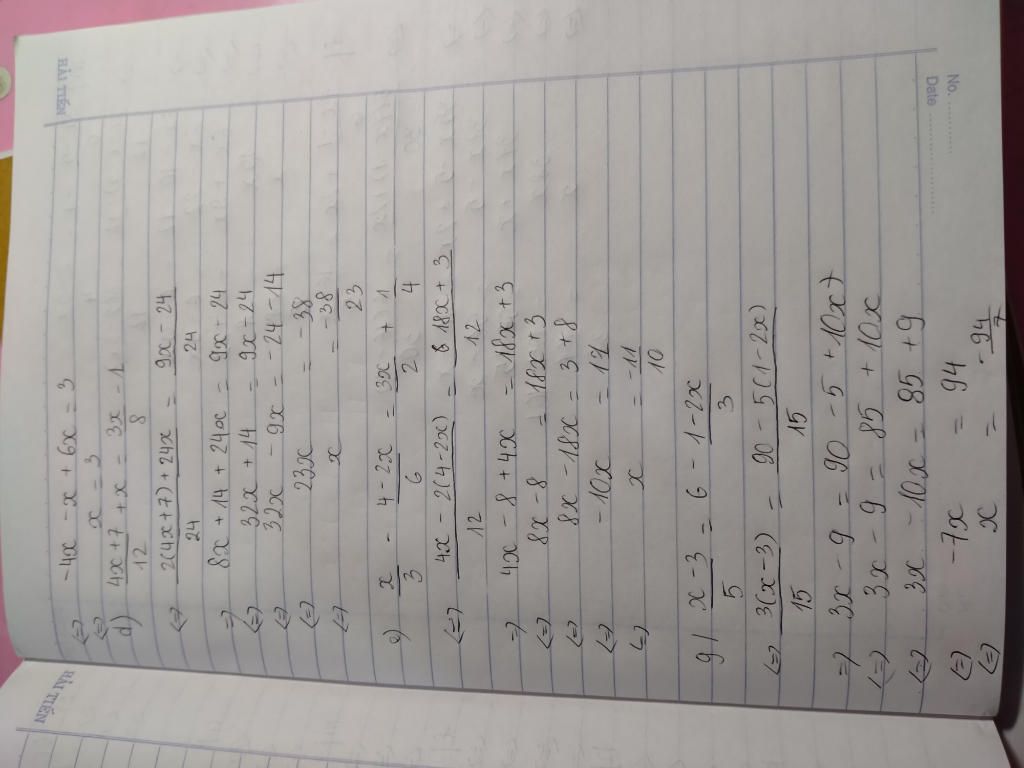 HẢI TIẾN
No. ............
Date ....................
<=> -4x - x + 6x = 3
<=> x = 3
d) (4x+7)/12 + x = (3x)/8 - 1
<=> (2(4x+7) + 24x)/24 = (9x - 24)/24
=> 8x + 14 + 24x = 9x - 24
<=> 32x + 14 = 9x - 24
<=> 32x - 9x = -24 - 14
<=> 23x = -38
<=> x = -38/23
e) x/3 - (4-2x)/6 = 3x/2 + 1/4
<=> (4x - 2(4-2x))/12 = (18x + 3)/12
=> 4x - 8 + 4x = 18x + 3
<=> 8x - 8 = 18x + 3
<=> 8x - 18x = 3 + 8
<=> -10x = 11
<=> x = -11/10
g) (x-3)/5 = 6 - (1-2x)/3
<=> 3(x-3)/15 = (90 - 5(1-2x))/15
=> 3x - 9 = 90 - 5 + 10x
<=> 3x - 9 = 85 + 10x
<=> 3x - 10x = 85 + 9
<=> -7x = 94
<=> x = -94/7
HẢI TIẾN